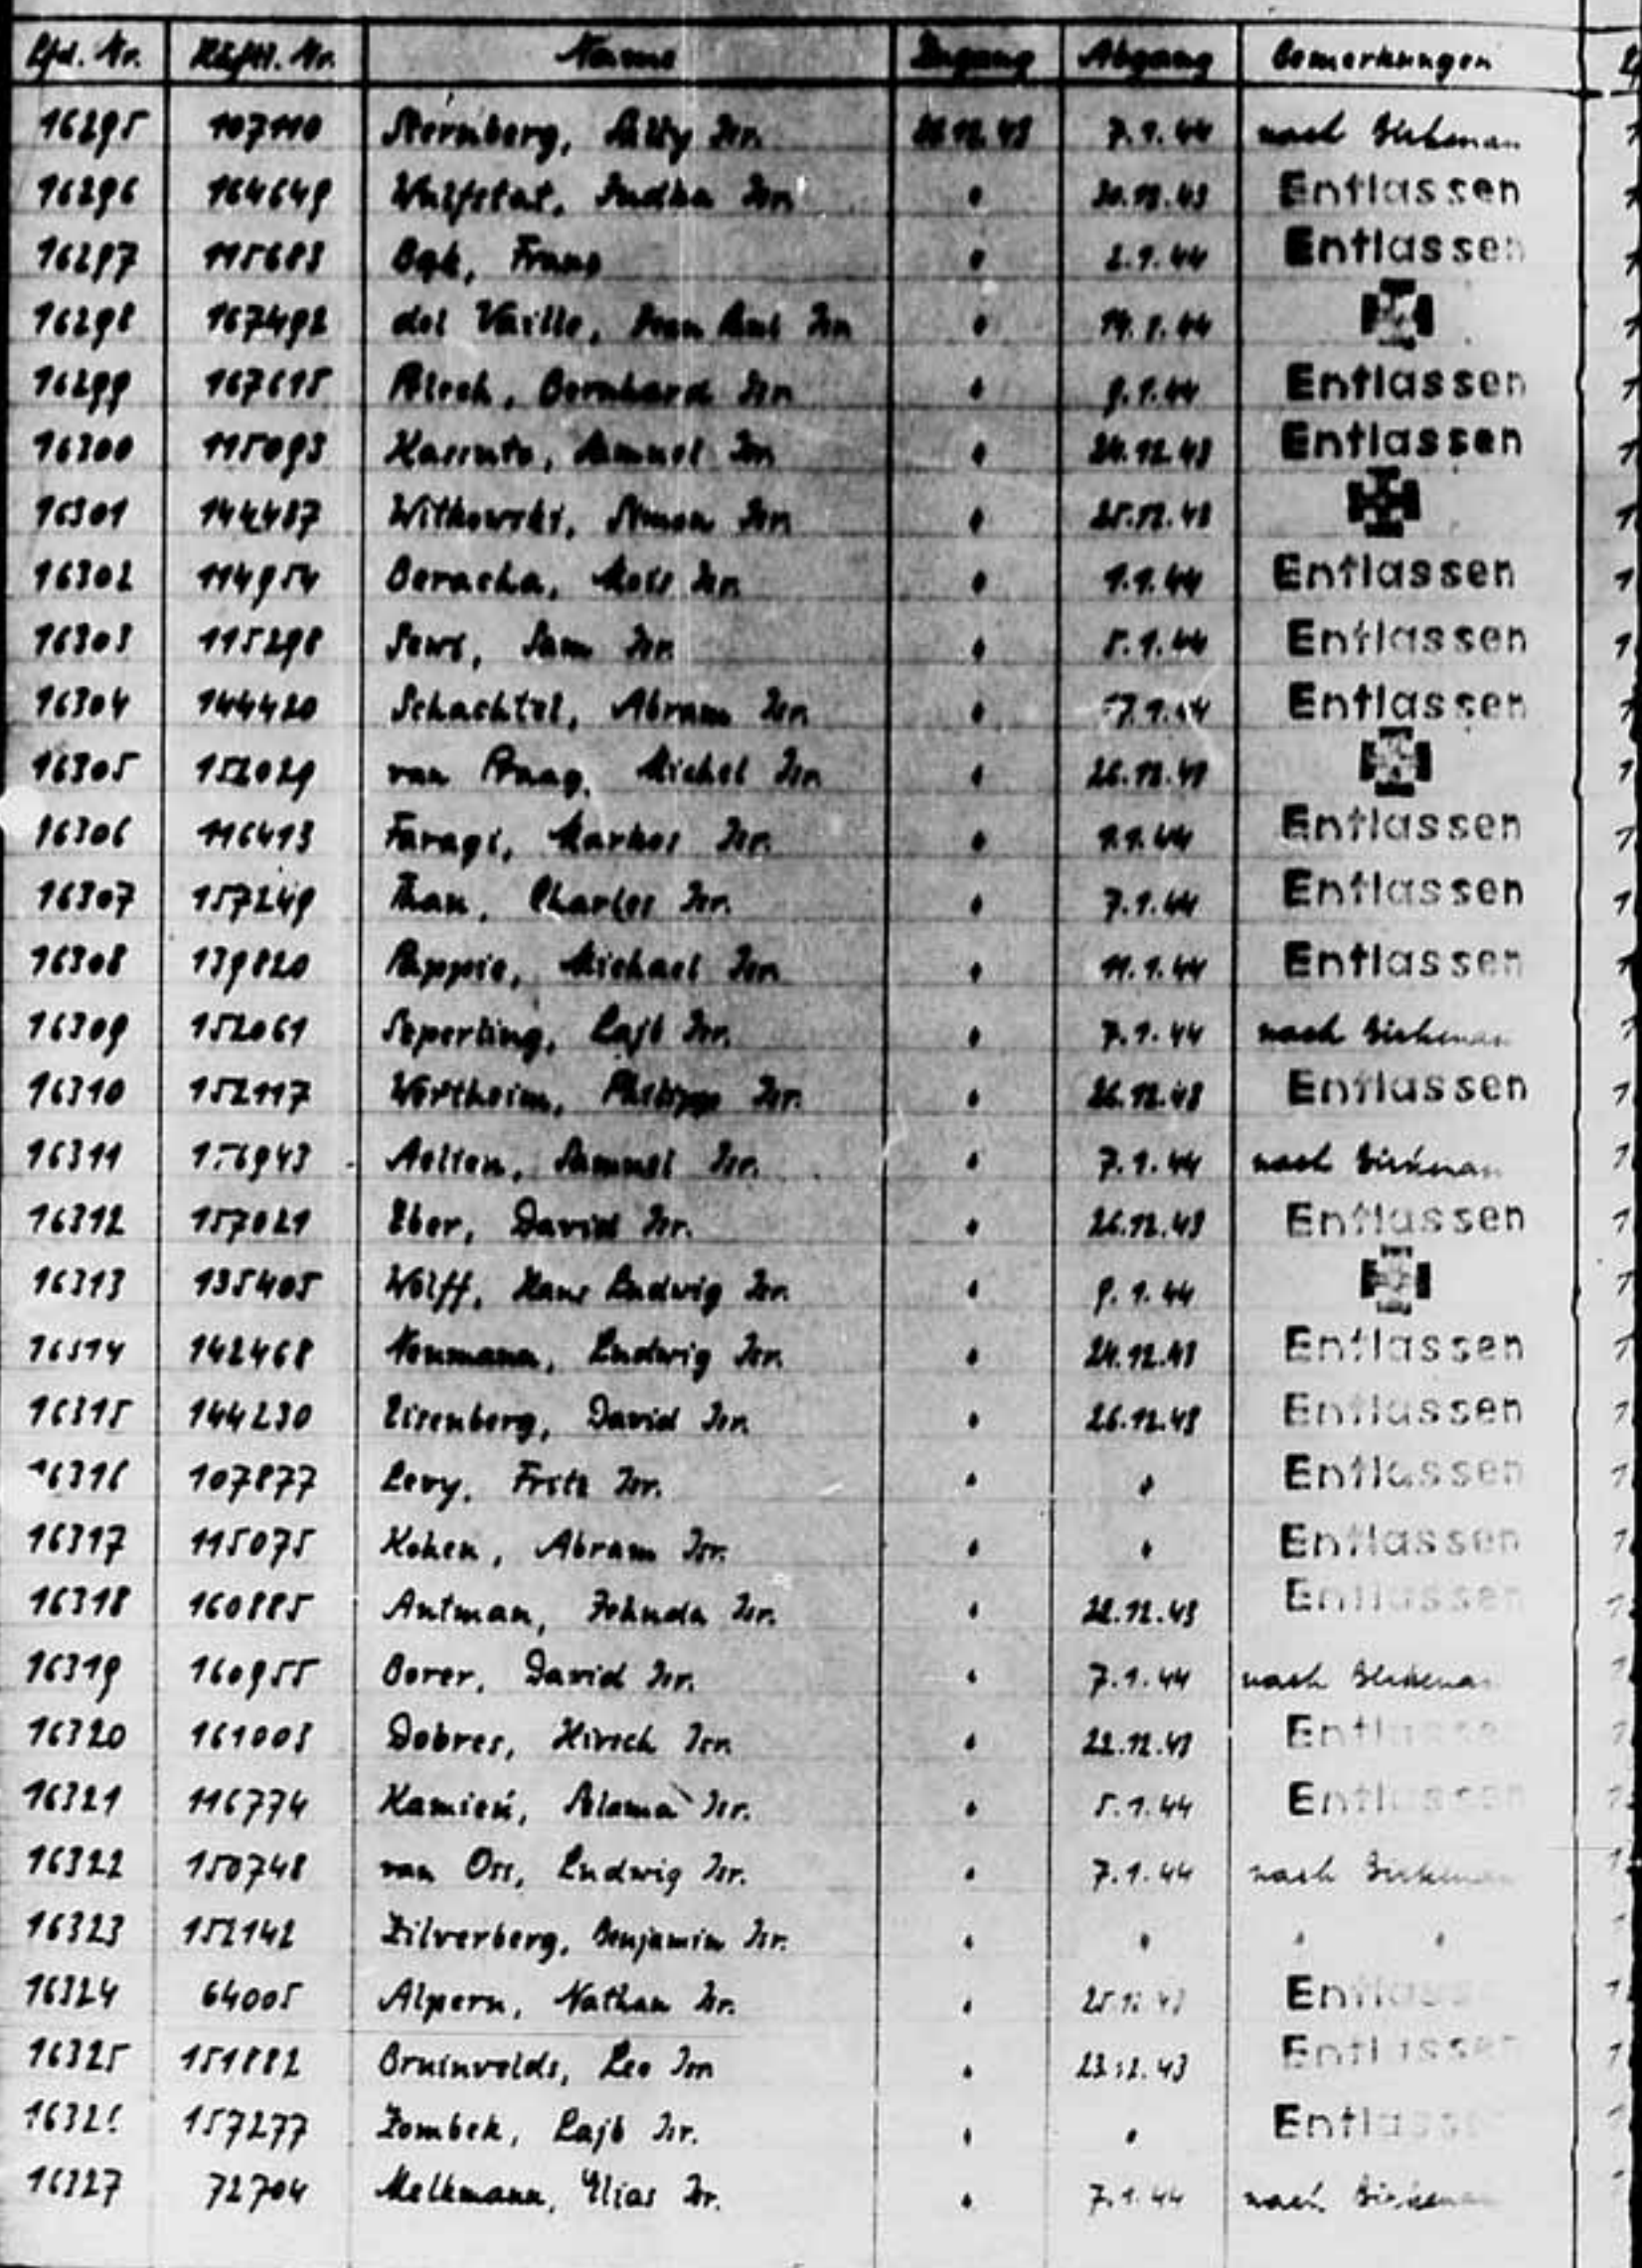 Lfd. Nr. Häftl. Nr. Name Zugang Abgang Bemerkungen
16295 107110 Sternberg, Isr. 20.12.43 7.1.44 nach Birkenau
16296 164649 Wulfstat, Judka Isr. " 30.12.43 Entlassen
16297 115683 Franz " 2.1.44 Entlassen
16298 167492 del Vaille, Isr. " 14.1.44
16299 167615 Bernhard Isr. " 9.1.44 Entlassen
16300 115093 Samuel Isr. " 24.12.43 Entlassen
16301 144487 Witkowski, Simon Isr. " 25.12.43
16302 114954 Beracha, Isr. " 1.1.44 Entlassen
16303 115298 Sam Isr. " 5.1.44 Entlassen
16304 144420 Schachtel, Abram Isr. " 7.1.44 Entlassen
16305 152029 van Praag, Michel Isr. " 26.12.43
16306 116413 Faragi, Markos Isr. " 1.1.44 Entlassen
16307 157249 Than, Charles Isr. " 7.1.44 Entlassen
16308 139820 Michael Isr. " 11.1.44 Entlassen
16309 152061 Seperling, Lajb Isr. " 7.1.44 nach Birkenau
16310 152117 Wertheim, Philipp Isr. " 26.12.43 Entlassen
16311 Samuel Isr. " 7.1.44 nach Birkenau
16312 157021 Eber, David Isr. " 26.12.43 Entlassen
16313 135405 Wolff, Hans Ludwig Isr. " 9.1.44
16314 142468 Neumann, Ludwig Isr. " 24.12.43 Entlassen
16315 144230 Eisenberg, David Isr. " 26.12.43 Entlassen
16316 107877 Levy, Fritz Isr. " " Entlassen
16317 115075 Kohen, Abram Isr. " " Entlassen
16318 160885 Antman, Jehuda Isr. " 22.12.43 Entlassen
16319 160955 Borer, David Isr. " 7.1.44 nach Birkenau
16320 161003 Dobres, Hirsch Isr. " 22.12.43 Entlassen
16321 116774 Kamień, Salama Isr. " 5.1.44 Entlassen
16322 150748 van Oss, Ludwig Isr. " 7.1.44 nach Birkenau
16323 152142 Zilverberg, Benjamin Isr. " " " "
16324 64005 Alpern, Nathan Isr. " 25.12.43 Entlassen
16325 151882 Bruinvelds, Leo Isr. " 23.12.43 Entlassen
16326 157277 Zombek, Lajb Isr. " " Entlassen
16327 72704 Melkmann, Elias Isr. " 7.1.44 nach Birkenau